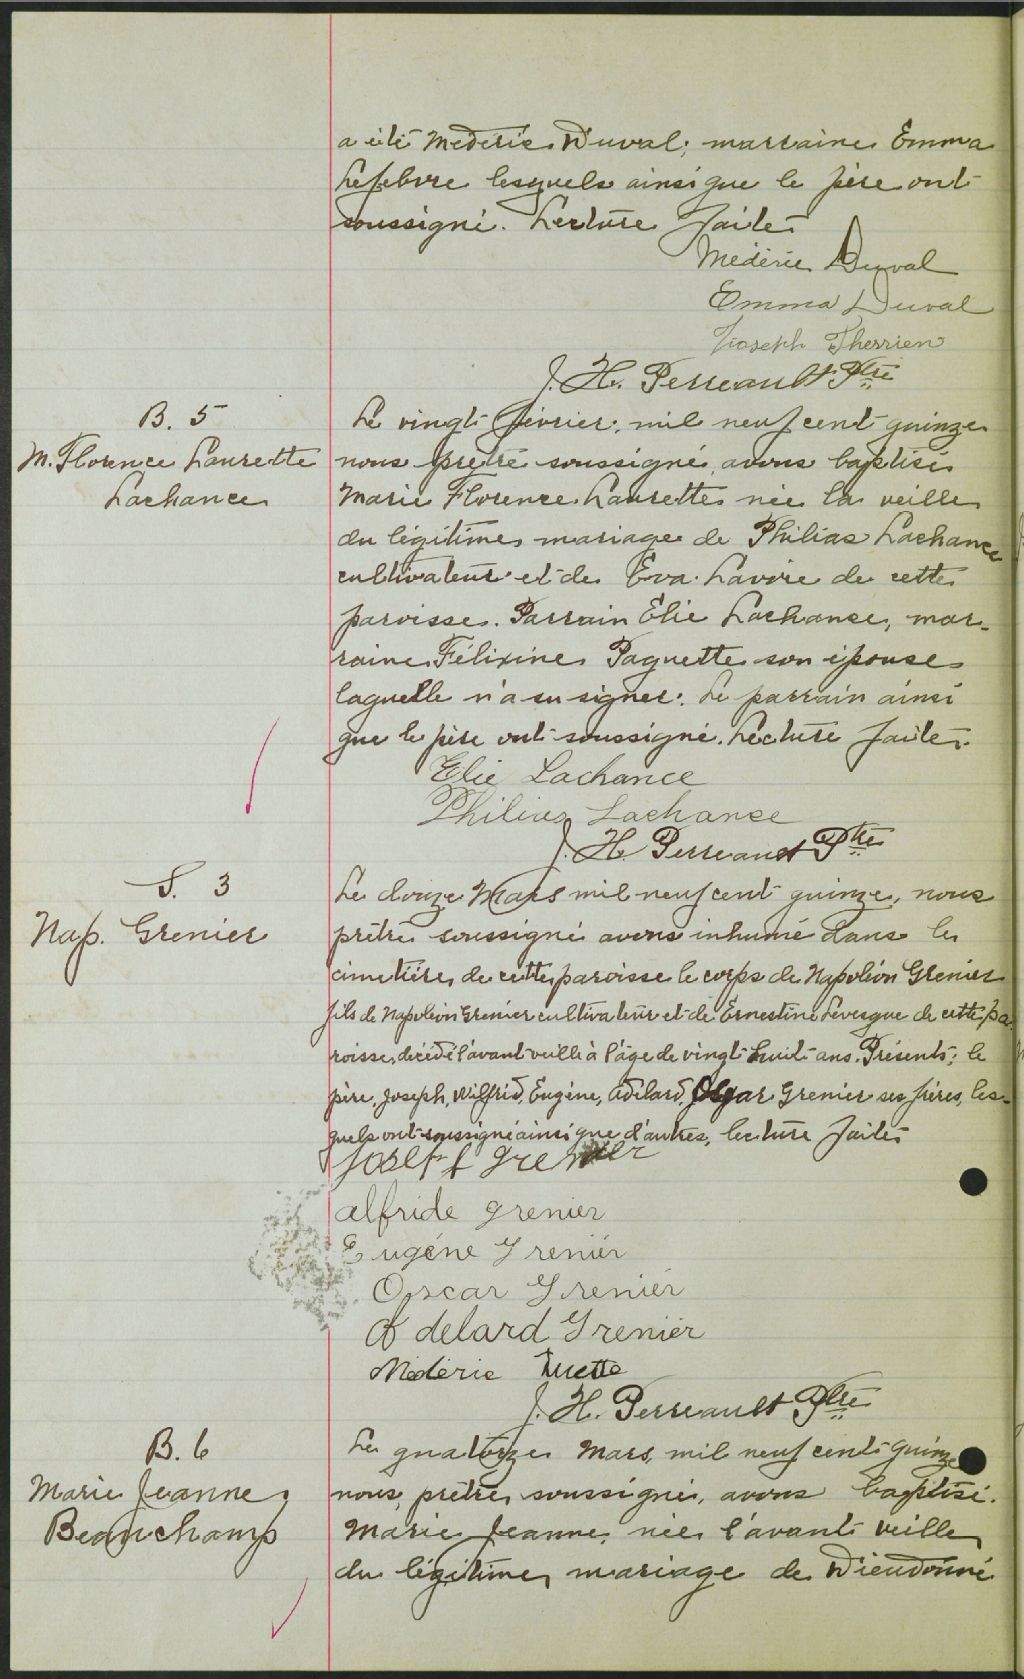 a été Médéric Duval, marraine Emma
Lefebvre lesquels ainsi que le père ont
soussigné. Lecture faite.
Médéric Duval
Emma Duval
Joseph Therrien
J. H. Perreault Ptre
B. 5
M. Florence Laurette
Lachance
Le vingt février, mil neuf cent quinze
nous prêtre soussigné, avons baptisé
Marie Florence Laurette née la veille
du légitime mariage de Philias Lachance
cultivateur et de Eva Lavoie de cette
paroisse. Parrain Elie Lachance, mar-
raine Félixine Paquette son épouse
laquelle n'a su signer. Le parrain ainsi
que le père ont soussigné. Lecture faite.
Elie Lachance
Philias Lachance
J. H. Perreault Ptre
S. 3
Nap. Grenier
Le douze Mars mil neuf cent quinze, nous
prêtre soussigné avons inhumé dans le
cimetière de cette paroisse le corps de Napoléon Grenier
fils de Napoléon Grenier cultivateur et de Ernestine Levesque de cette pa-
roisse, décédé l'avant veille à l'âge de vingt huit ans. Présents; le
père, Joseph, Wilfrid, Eugène, Adélard, Grenier ses frères, les-
quels ont soussigné ainsi que d'autres, lecture faite
Joseph Grenier
alfride grenier
Eugéne Grenier
Oscar Grenier
Adelard Grenier
Médéric
J. H. Perreault Ptre
B. 6
Marie Jeanne
Beauchamp
Le quatorze Mars, mil neuf cent quinze
nous, prêtre soussigné, avons baptisé
Marie Jeanne, née l'avant veille
du légitime mariage de Dieudonné